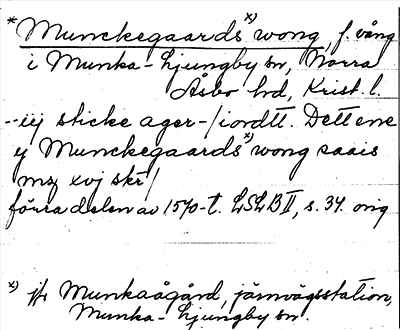 *Munckegaards x) wong, f. vång
i Munka-Ljungby sn, Norra
Åsbo hd, Krist. l.
--iij sticke ager-/iordtt. Dett ene
y Munckegaards x) wong saais
mz xvj skr/
förra delen av 1570-t. LSLB II, s. 34. orig
x) jfr Munkagård, järnvägsstation,
Munka-Ljungby sn.